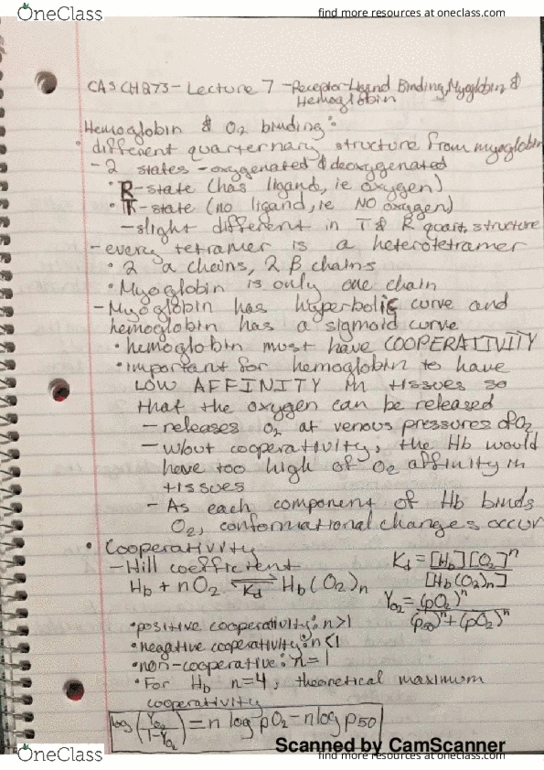 OneClass
find more resources at oneclass.com
CAS CH273 - Lecture 7 - Receptor-Ligand Binding, Myoglobin &
Hemoglobin
Hemoglobin & O2 binding:
• different quarternary structure from myoglobin
- 2 states - oxygenated & deoxygenated
• R-state (has ligand, ie oxygen)
• T-state (no ligand, ie NO oxygen)
- slight different in T & R quart. structure
- every tetramer is a heterotetramer
• 2 α chains, 2 β chains
• Myoglobin is only one chain
- Myoglobin has hyperbolic curve and
hemoglobin has a sigmoid curve
• hemoglobin must have COOPERATIVITY
• important for hemoglobin to have
LOW AFFINITY in tissues so
that the oxygen can be released
- releases O2 at venous pressures of O2
- w/out cooperativity, the Hb would
have too high of O2 affinity in
tissues
- As each component of Hb binds
O2, conformational changes occur
• Cooperativity
- Hill coefficient
Kd = [Hb][O2]^n / [Hb(O2)n]
Hb + nO2 ⇌ Kd Hb(O2)n
YO2 = (pO2)^n / (p50)^n + (pO2)^n
• positive cooperativity: n>1
• negative cooperativity: n<1
• non-cooperative: n=1
• For Hb n=4, theoretical maximum
cooperativity
log (YO2 / 1-YO2) = n log pO2 - n log p50
Scanned by CamScanner
OneClass
find more resources at oneclass.com